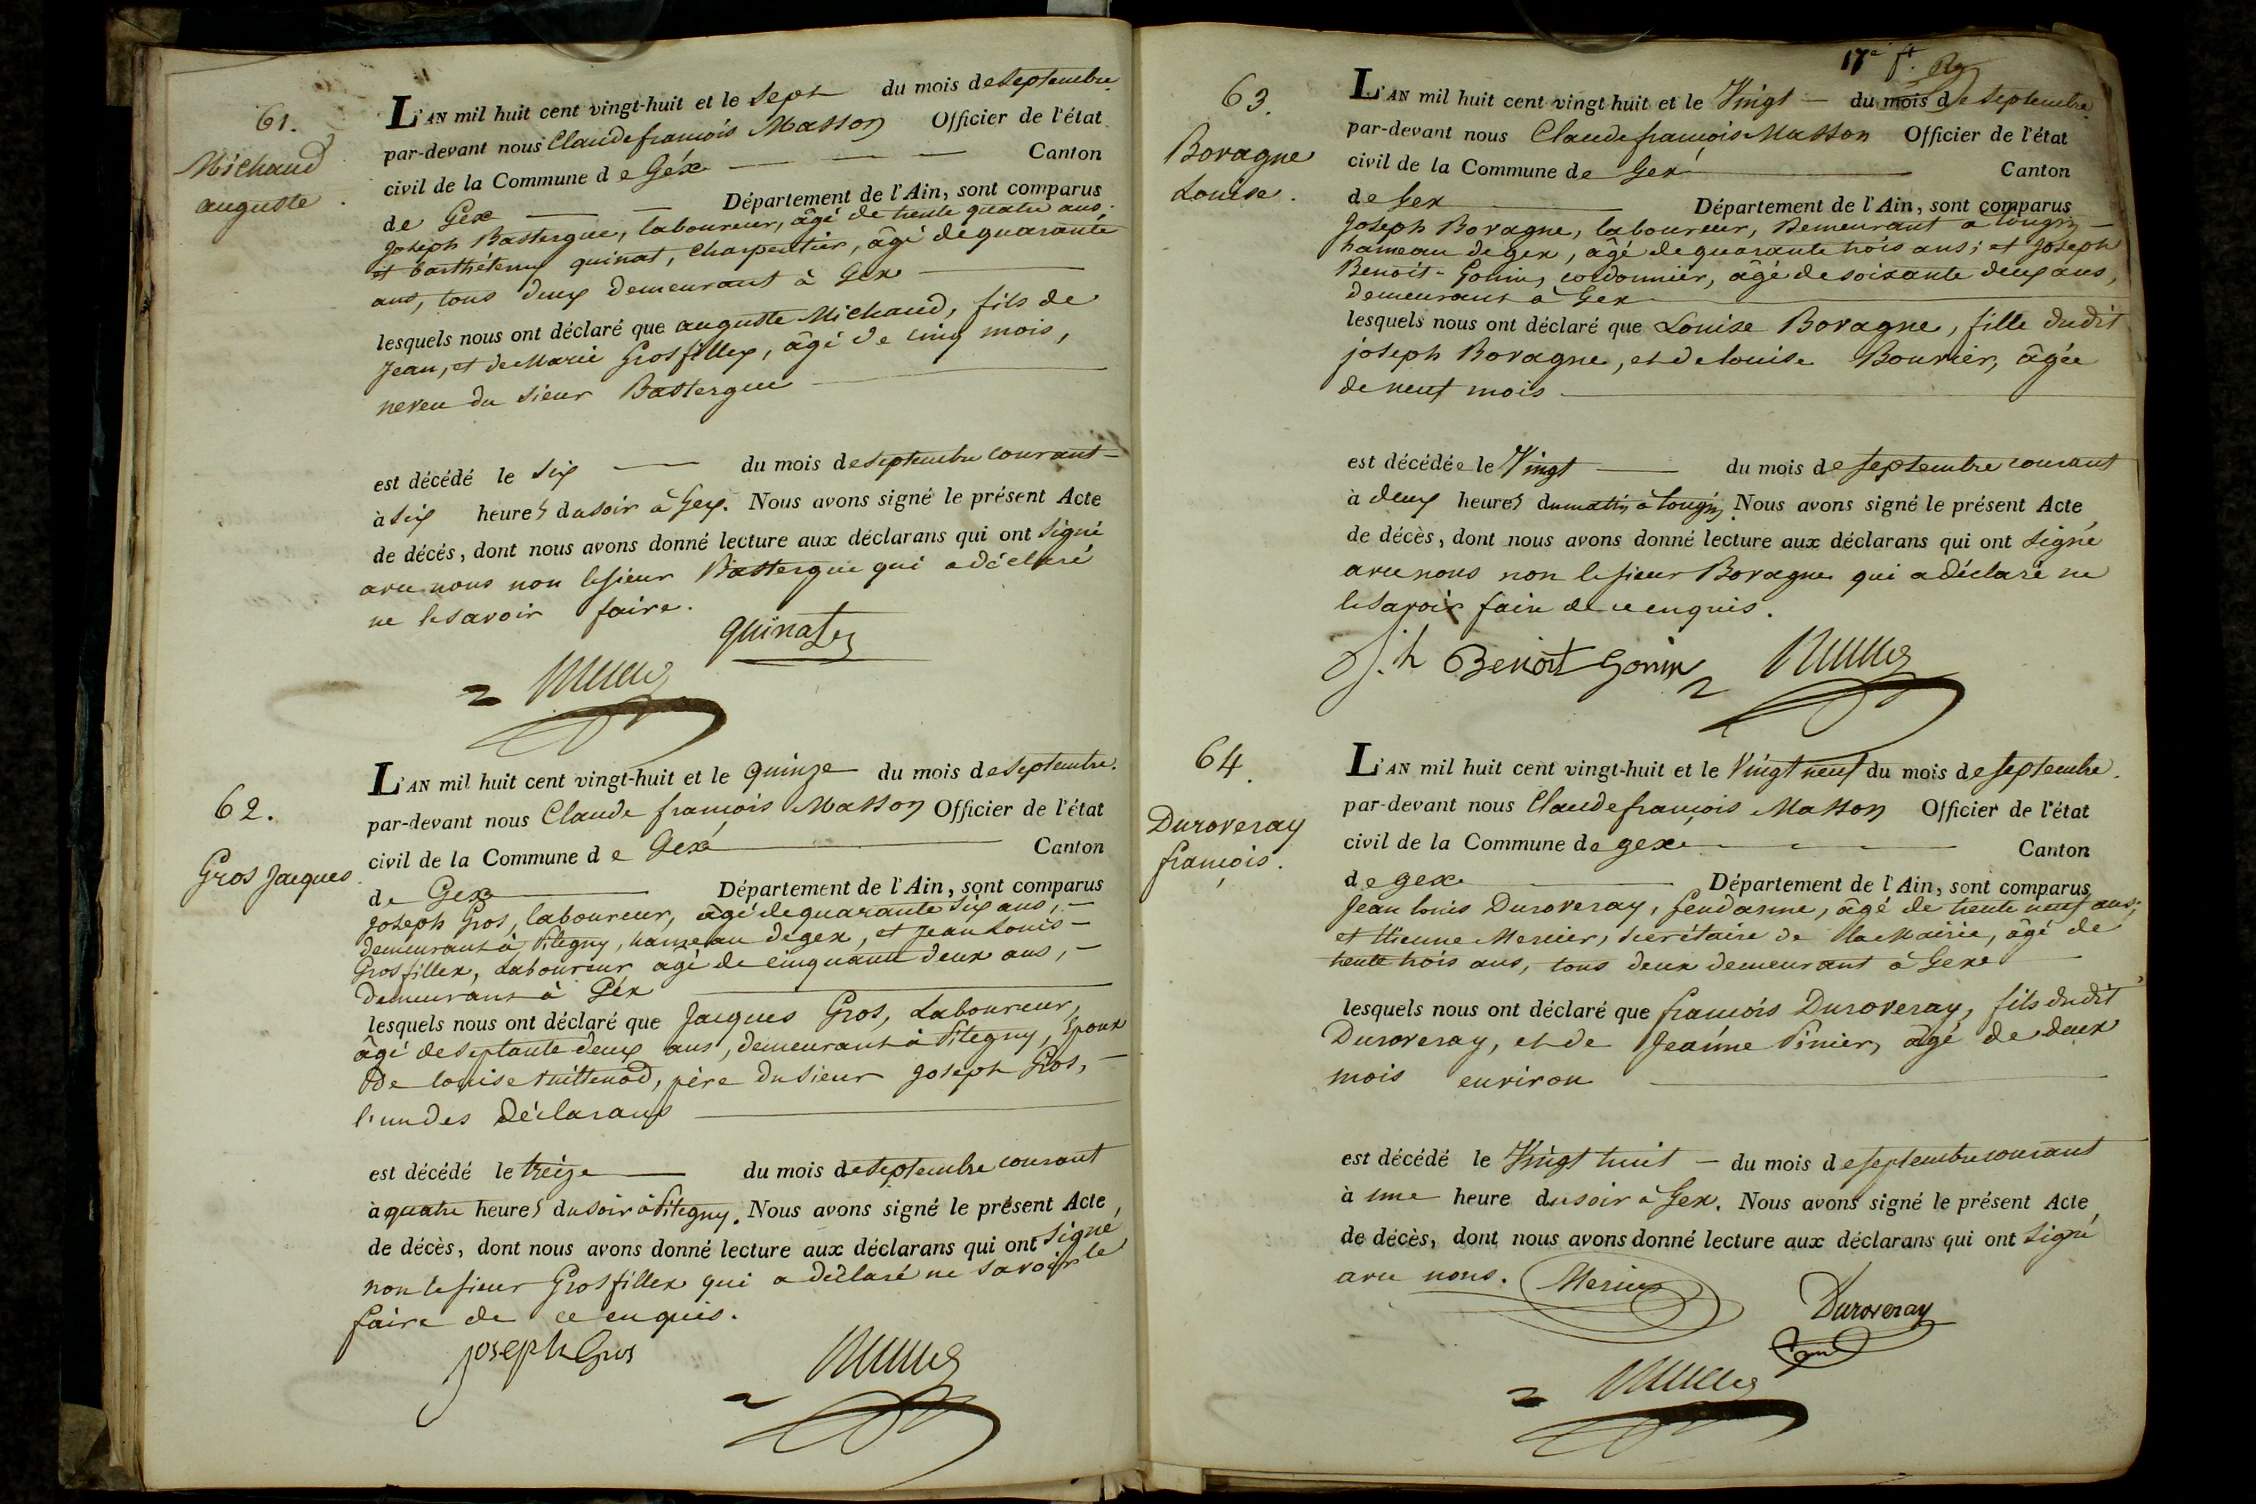 61.
Michaud
auguste.
L'AN mil huit cent vingt-huit et le Sept du mois de Septembre
par-devant nous Claude françois Masson Officier de l'état
civil de la Commune de Gex Canton
de Gex Département de l'Ain, sont comparus
Joseph Bastergue, laboureur, âgé de trente quatre ans,
et barthélemy quinat, Charpentier, âgé de quarante
ans, tous deux demeurant à Gex
lesquels nous ont déclaré que auguste Michaud, fils de
Jean, et de Marie Grosfillex, âgé de cinq mois,
neveu du sieur Bastergue
est décédé le Six du mois de septembre courant
à Six heures du soir à Gex. Nous avons signé le présent Acte
de décés, dont nous avons donné lecture aux déclarans qui ont signé
avec nous non le sieur Bastergue qui a déclaré
ne le savoir faire.
quinat
62.
Gros Jacques
L'AN mil huit cent vingt-huit et le quinze du mois de Septembre.
par-devant nous Claude françois Masson Officier de l'état
civil de la Commune de Gex Canton
de Gex Département de l'Ain, sont comparus
Joseph Gros, laboureur, âgé de quarante six ans,
demeurant à Pitegny, hameau de gex, et Jean Louis
Grosfillex, Laboureur agé de cinquante deux ans,
demeurant à Géx
lesquels nous ont déclaré que Jacques Gros, Laboureur,
âgé de septante deux ans, demeurant à Pitegny, Epoux
de louise tuittenod, père du sieur Joseph Gros,
l'un des déclarans
est décédé le treize du mois de septembre courant
à quatre heures du soir à Pitegny. Nous avons signé le présent Acte
de décès, dont nous avons donné lecture aux déclarans qui ont signé
non le sieur Grosfillex qui a déclaré ne savoir le
faire de ce enquis.
joseph Gros
17e ft.
63.
Bovagne
Louise.
L'AN mil huit cent vingt huit et le Vingt du mois de Septembre
par-devant nous Claude françois Masson Officier de l'état
civil de la Commune de Gex Canton
de Gex Département de l'Ain, sont comparus
Joseph Bovagne, laboureur, Demeurant à tougin
hameau de gex, âgé de quarante trois ans; et Joseph
Benoit-Gonin, cordonnier, âgé de soixante deux ans,
demeurant à Gex
lesquels nous ont déclaré que Louise Bovagne, fille dudit
joseph Bovagne, et de louise Bouvier, âgée
de neuf mois
est décédée le Vingt du mois de septembre courant
à deux heures du matin à tougin. Nous avons signé le présent Acte
de décès, dont nous avons donné lecture aux déclarans qui ont signé
avec nous non le sieur Bovagne qui a déclaré ne
le savoir faire de ce enquis.
J.h Benoit Gonin
64.
Duroveray
françois.
L'AN mil huit cent vingt-huit et le Vingt neuf du mois de septembre.
par-devant nous Claude françois Masson Officier de l'état
civil de la Commune de gex Canton
de gex Département de l'Ain, sont comparus
Jean louis Duroveray, Gendarme, âgé de trente neuf ans,
et Etienne Mercier, secrétaire de la Mairie, âgé de
trente trois ans, tous deux demeurant à Gex
lesquels nous ont déclaré que françois Duroveray, fils dudit
Duroveray, et de Jeanne Pinier, âgé de deux
mois environ
est décédé le Vingt huit du mois de septembre courant
à une heure du soir à Gex. Nous avons signé le présent Acte
de décès, dont nous avons donné lecture aux déclarans qui ont signé
avec nous.
Mercier
Duroveray